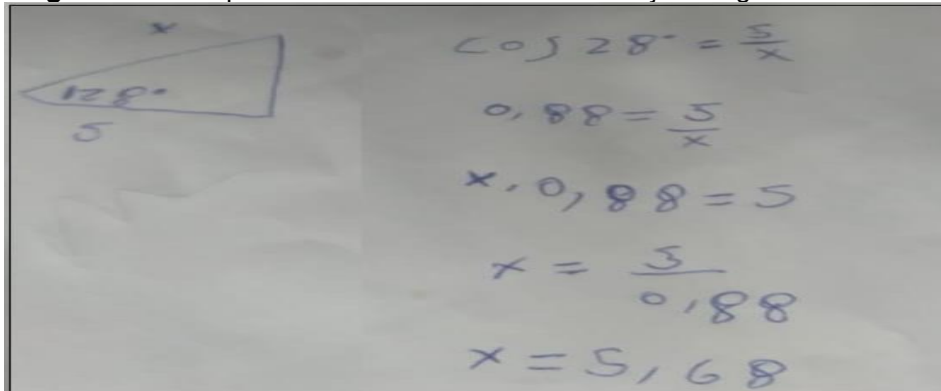 x
28°
5
cos 28° = 5/x
0,88 = 5/x
x . 0,88 = 5
x = 5/0,88
x = 5,68